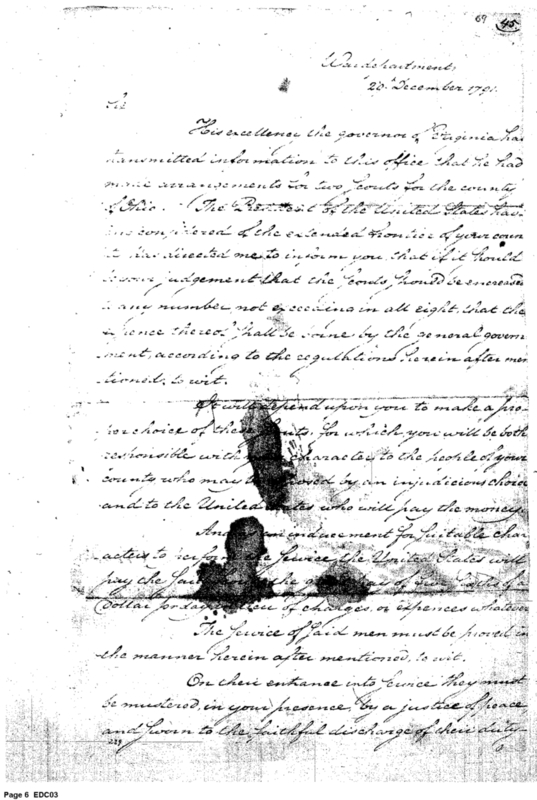 69 45
War department
20th December 1791.
Sir
His excellency the governor of Virginia has
transmitted information to this office that he had
made arrangements for two Scouts for the county
of Ohio. The President of the United States hav
ing considered of the extended frontier of your coun
ty has directed me to inform you, that if it should
be your judgement that the Scouts should be encreased
to any number not exceeding in all eight, that the
expence thereof shall be borne by the general govern
ment, according to the regulations herein after men
tioned, to wit.
It will depend upon you to make a pro
per choice of these Scouts, for which you will be both
responsible with your character to the people of your
county who may be exposed by an injudicious choice
and to the United States who will pay the money.
And as an inducement for suitable char
acters to perform the service the United States will
pay the said the of five sixths of a
Dollar per day in lieu of charges or expences whatever
The service of said men must be proved in
the manner herein after mentioned, to wit.
On their entrance into service they must
be mustered, in your presence by a justice of peace
and sworn to the faithful discharge of their duty
229
Page 6 EDC03